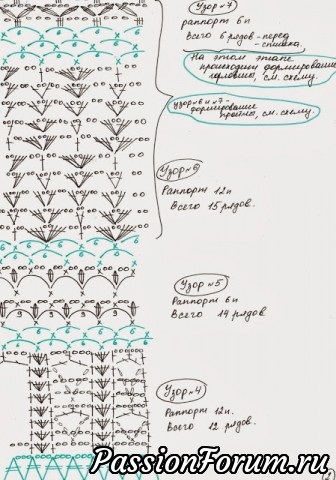 Узор №7
раппорт 6п
Всего 6 рядов - перед
- спинка.
На этом этапе
происходит формирование
горловины, см. схему.
узор №6 и №7 -
формирование
проймы, см. схему.
Узор №6
Раппорт 12п
Всего 15 рядов.
Узор №5
Раппорт 6п
Всего 14 рядов
Узор №4
Раппорт 12п.
Всего 12 рядов.
PassionForum.ru